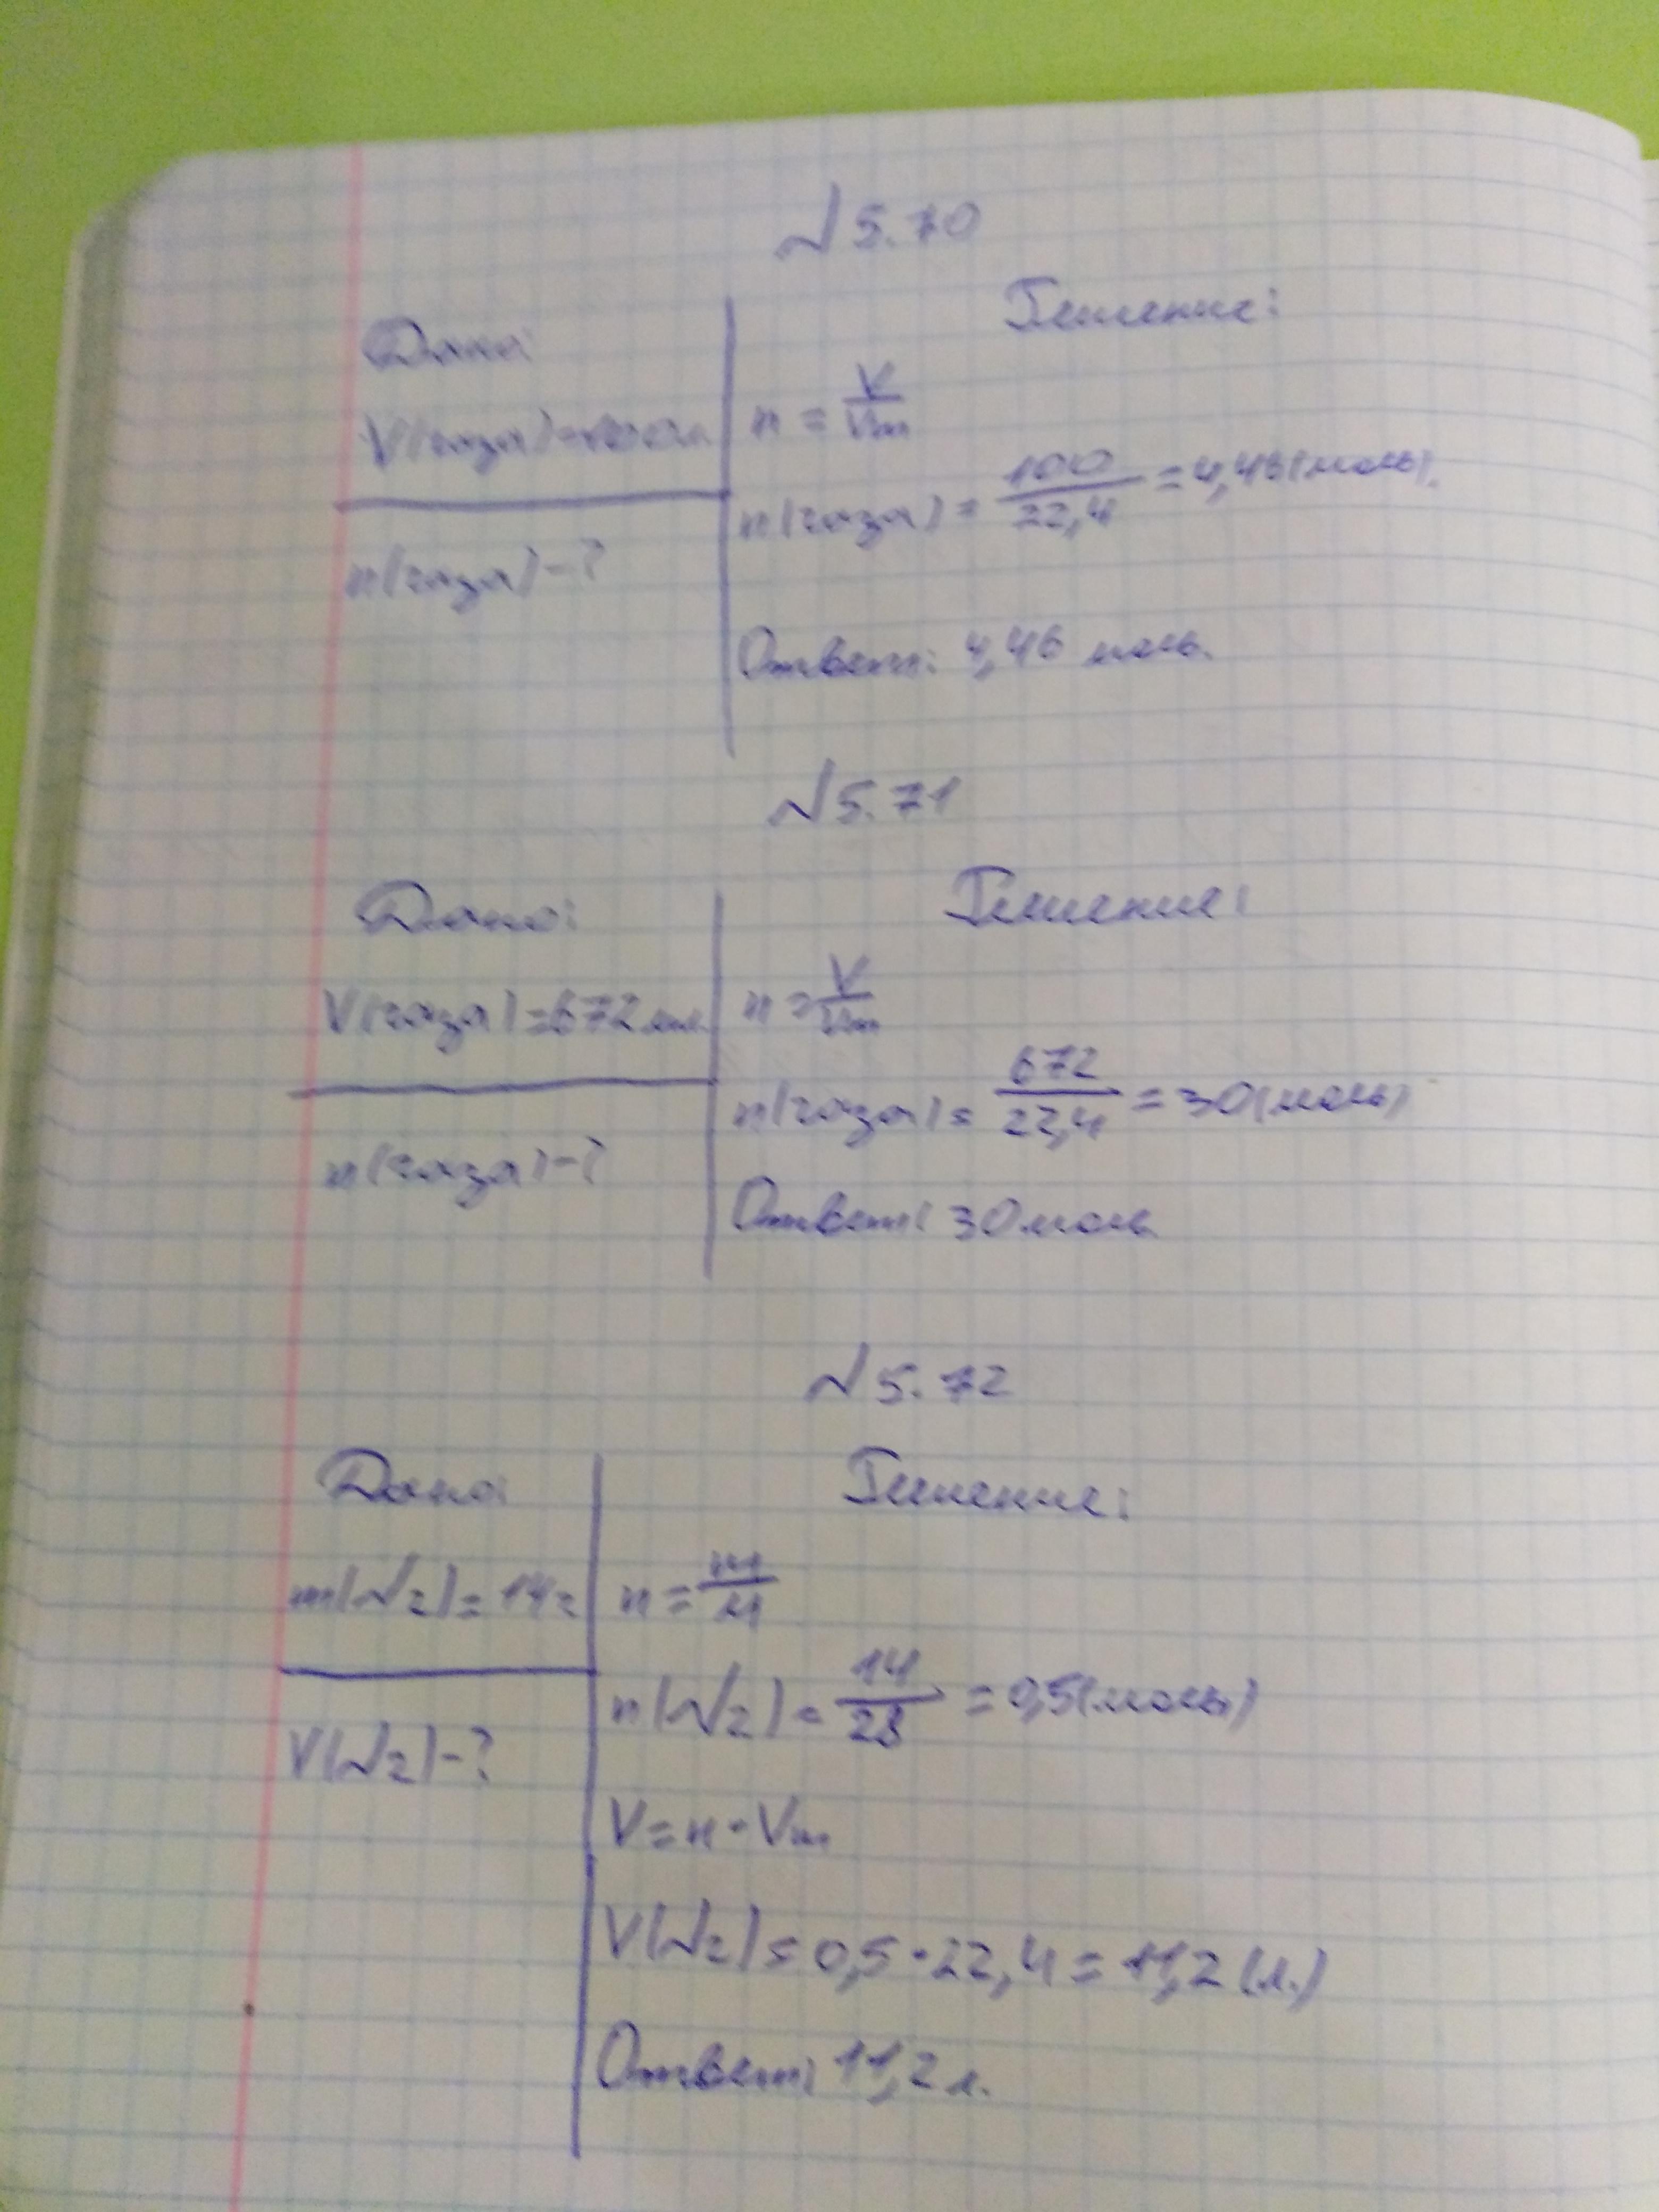 №5.70
Дано:
Решение:
V(газа)=100л
n = V/Vm
n(газа) = 100/22,4 = 4,46(моль).
n(газа)-?
Ответ: 4,46 моль.
№5.71
Дано:
Решение:
V(газа)=672мл
n = V/Vm
n(газа) = 672/22,4 = 30(моль)
n(газа)-?
Ответ: 30моль
№5.72
Дано:
Решение:
m(N2)=14г
n = m/M
n(N2) = 14/28 = 0,5(моль)
V(N2)-?
V=n·Vm
V(N2)=0,5·22,4=11,2(л.)
Ответ: 11,2л.